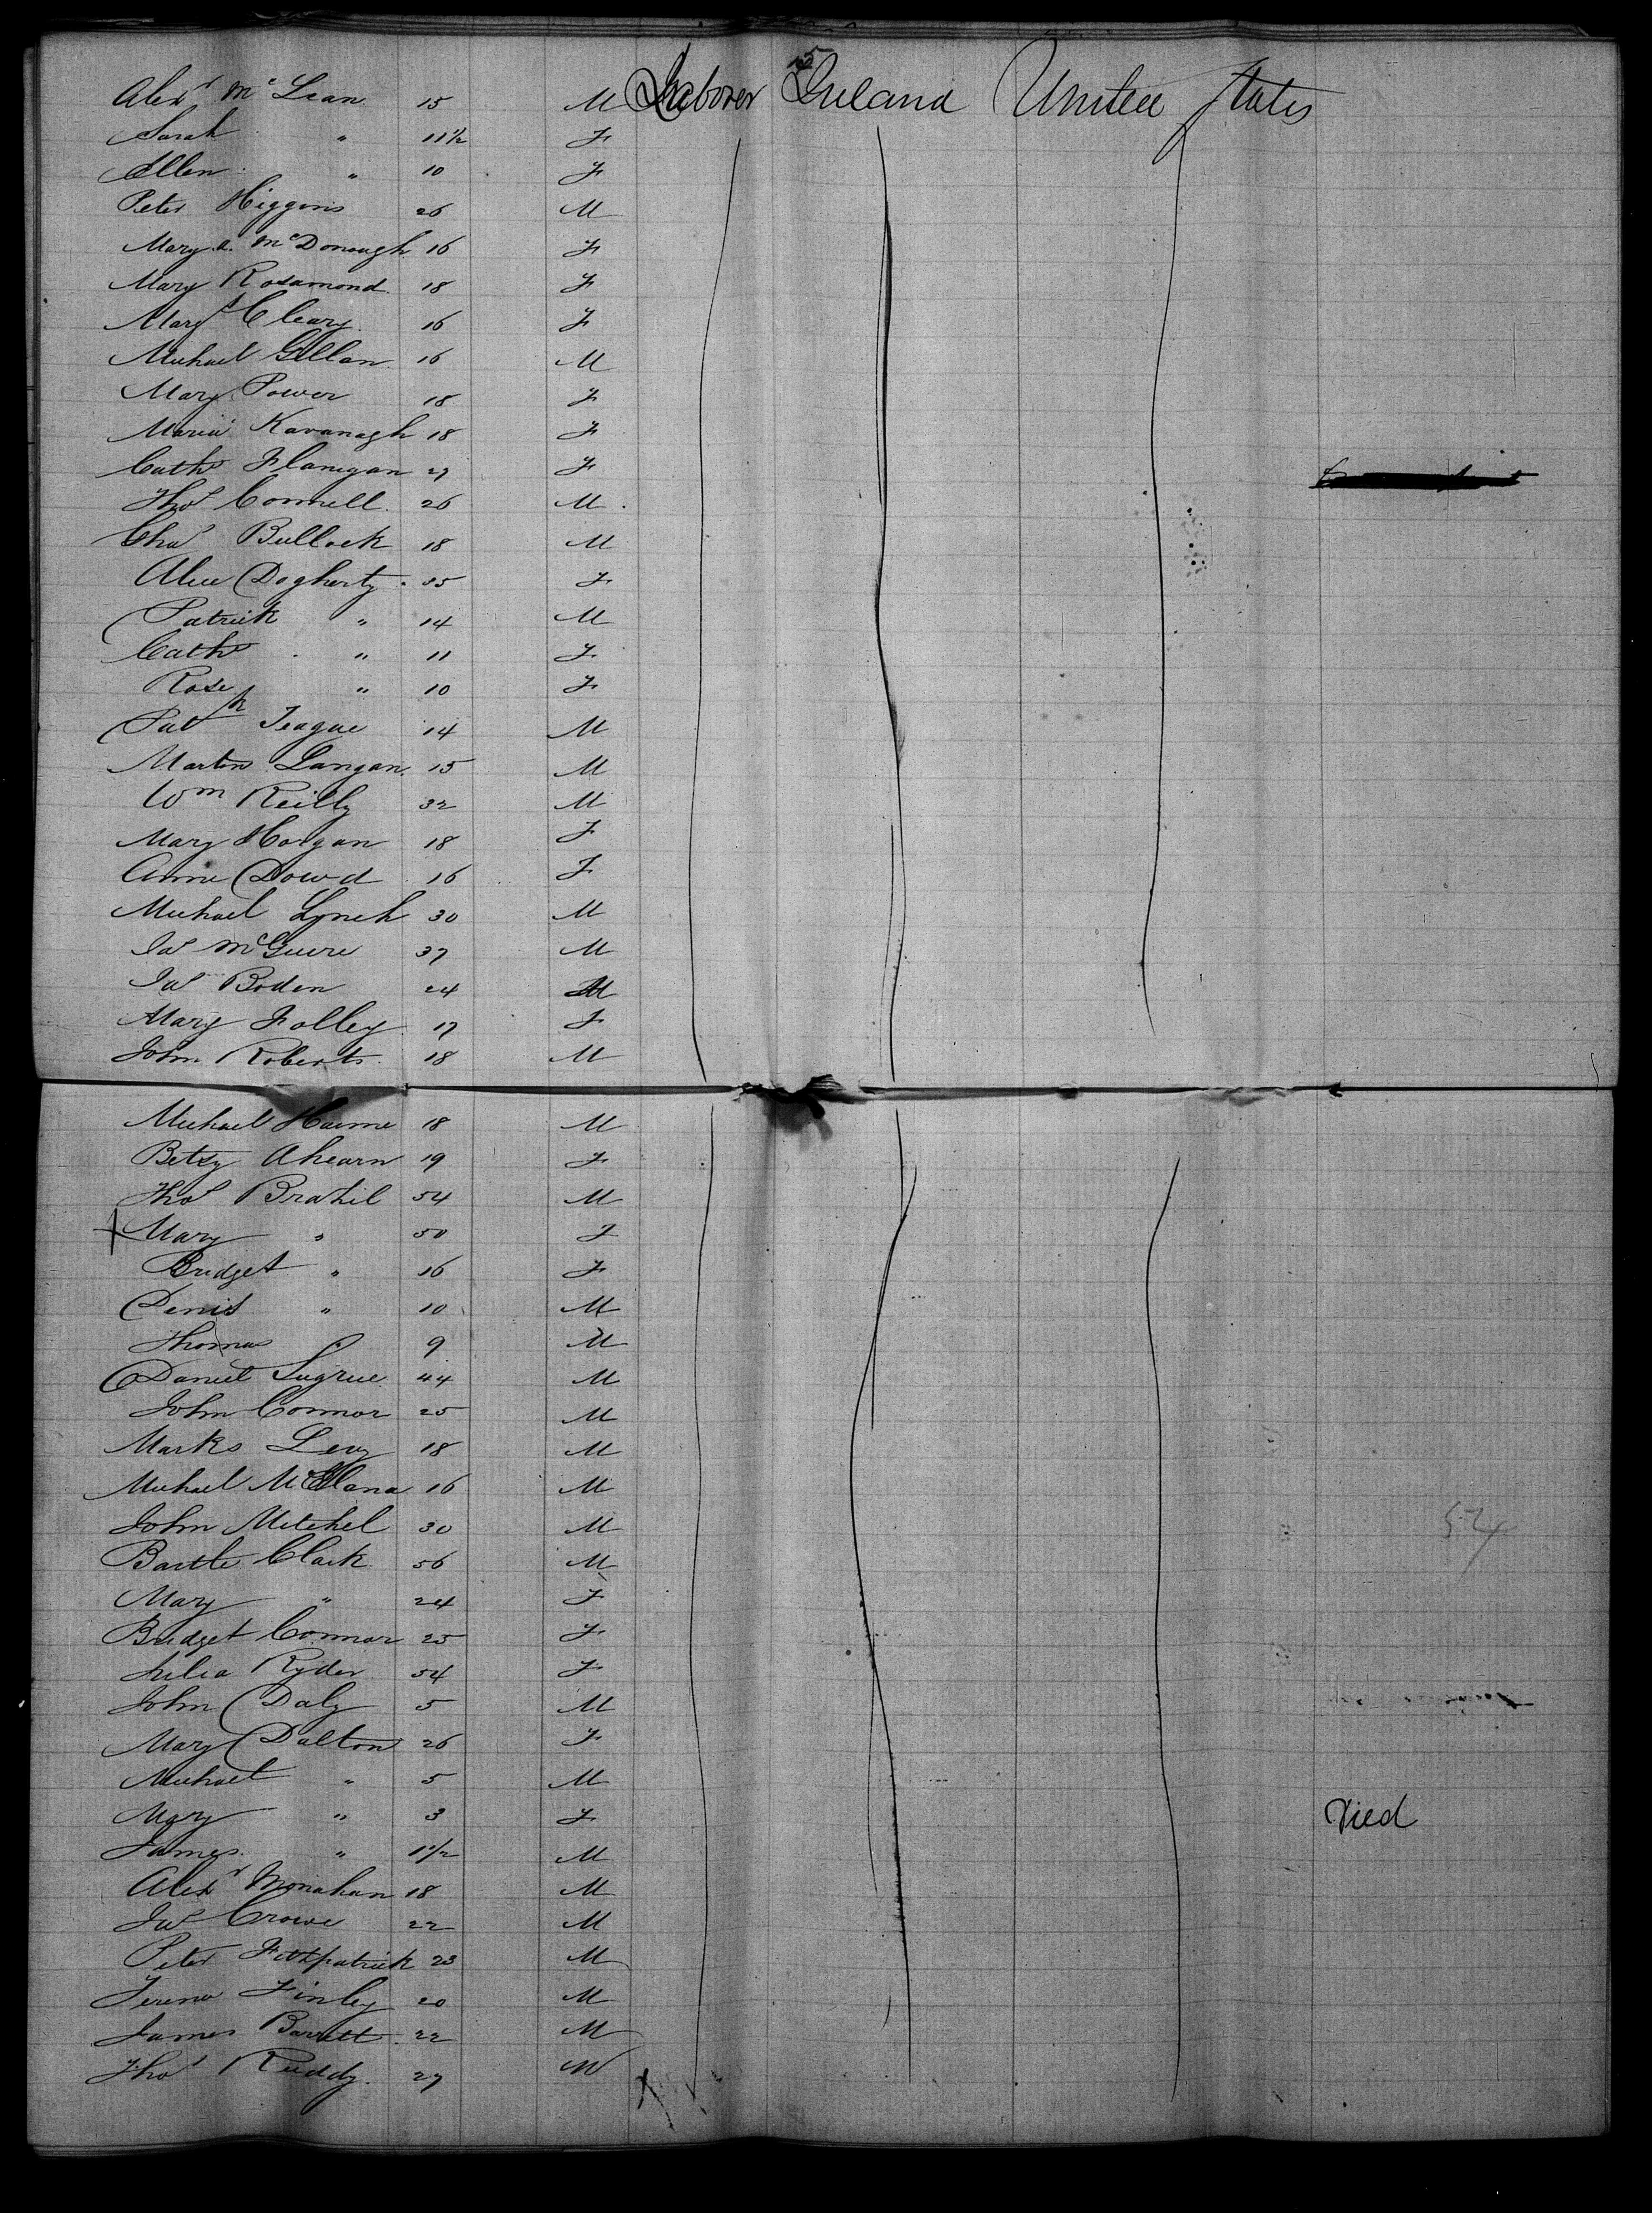 5
Alexr McLean 15 M Laborer Ireland United States
Sarah " 11 1/2 F
Ellen " 10 F
Peter Higgins 26 M
Mary A. McDonough 16 F
Mary Rosamond 18 F
Mary Cleary 16 F
Michael Gillan 16 M
Mary Power 18 F
Maria Kavanagh 18 F
Cathe Flanigan 27 F
Thos Connell 26 M
Chas Bullock 18 M
Alice Dogherty 35 F
Patrick " 14 M
Cathe " 11 F
Rose " 10 F
Patk Teague 14 M
Martin Langan 15 M
Wm Reilly 32 M
Mary Horgan 18 F
Anne Dowd 16 F
Michael Lynch 30 M
Jas McGuire 37 M
Jas Boden 24 M
Mary Folley 17 F
John Roberts 18 M
Michael 18 M
Betsy Ahearn 19 F
Thos Brahil 54 M
+ Mary " 50 F
Bridget " 16 F
Denis " 10 M
Thomas " 9 M
Daniel Sugrue 44 M
John Connor 25 M
Marks Levy 18 M
Michael 16 M
John Mitchel 30 M 54
Bartle Clark 56 M
Mary " 24 F
Bridget Connor 25 F
Julia Ryder 54 F
John Daly 5 M
Mary Dalton 26 F
Michael " 5 M
Mary " 3 F Died
James " 1 1/2 M
Alexr Monahan 18 M
Jas Crowe 22 M
Peter Fitzpatrick 23 M
Terence Finley 20 M
James Barrett 22 M
Thos Ruddy 27 M